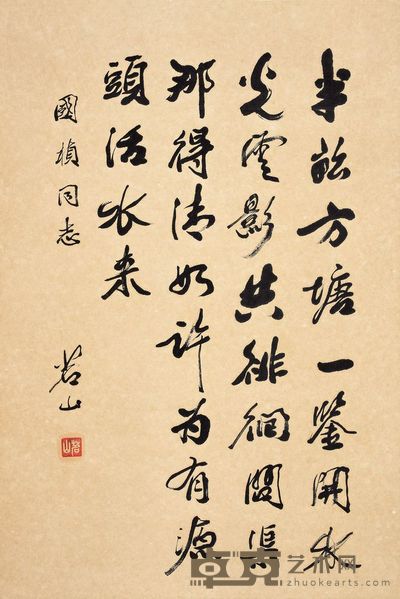 半畝方塘一鑒開
光雲影共徘徊問渠
那得清如許为有源
頭活水来
國楨同志
若山
卓克艺术网
zhuokearts.com